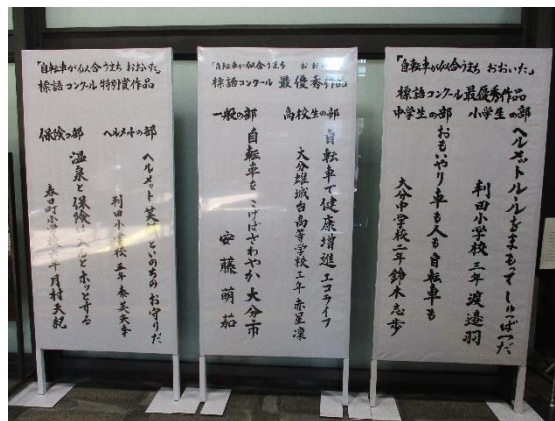 「自転車が似合うまち おおいた」
標語コンクール 最優秀作品
小学生の部
ヘルメットルールをまもってしゅっぱつだ
判田小学校 三年 渡邉 羽
中学生の部
おもいやり 車も人も自転車も
大分中学校 二年 鈴木 志歩
「自転車が似合うまち おおいた」
標語コンクール 最優秀作品
高校生の部
自転車で健康増進エコライフ
大分雄城台高等学校 三年 赤星 凜
一般の部
自転車をこげばさわやか大分市
安藤 萌茄
「自転車が似合うまち おおいた」
標語コンクール 特別賞作品
ヘルメットの部
ヘルメット 笑顔といのちの お守りだ
判田小学校 五年
保険の部
温泉と保険に入るとホッとする
春日町小学校 年 月村 天紀